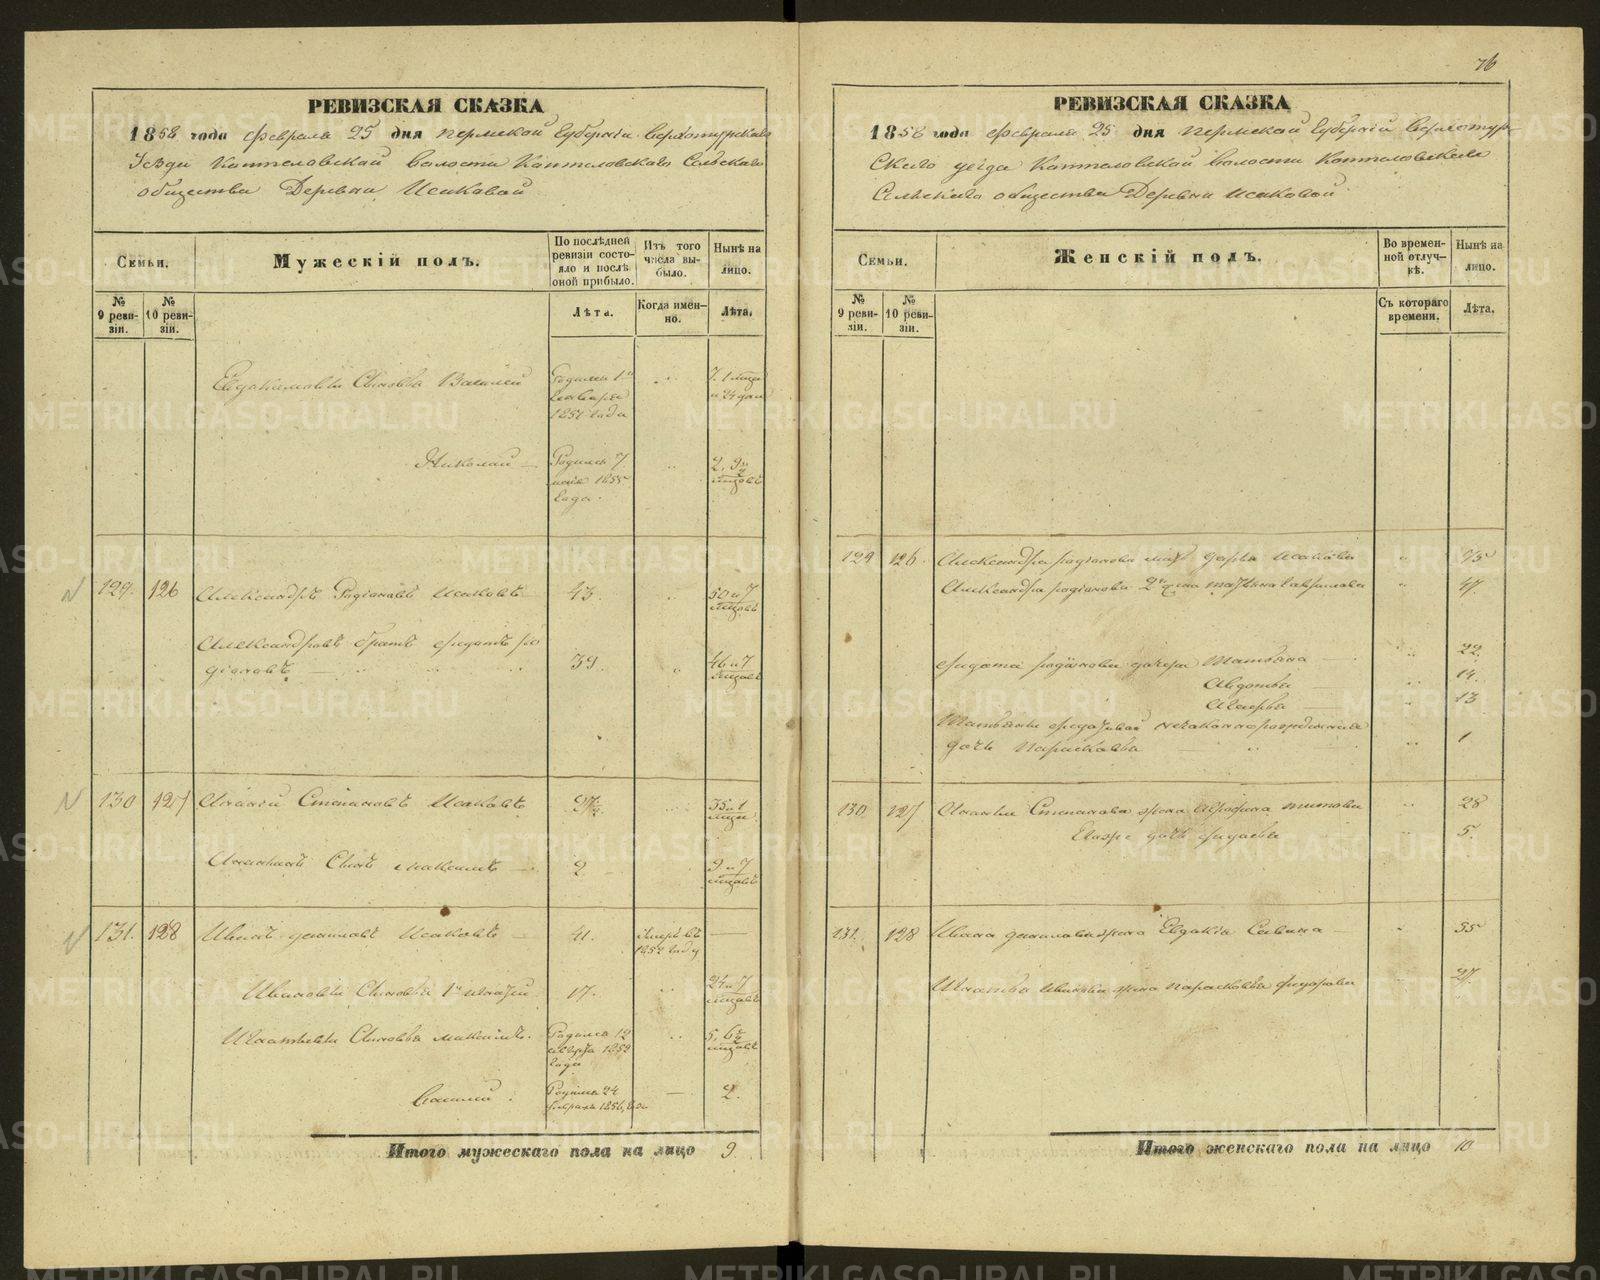 РЕВИЗСКАЯ СКАЗКА
1858 года февраля 25 дня Пермской Губернiи Верхотурскаго
Уезда Коптеловской волости Коптеловскаго Сельскаго
общества Деревни Исаковой
Семьи.
Мужескiй полъ.
По послѣдней ревизiи состояло и послѣ оной прибыло.
Изъ того числа выбыло.
Нынѣ на лицо.
№ 9 ревизiи.
№ 10 ревизiи.
Лѣта.
Когда именно.
Лѣта.
Евдокимовы Сыновья Василей Родился 1 января 1851 года 7. 1 месяц и 24 дня
Николай Родился 7 мая 1855 года. 2. 9½ месяцовъ
129. 126 Александръ Родiоновъ Исаковъ 43. 50 и 7 месяцовъ
Александровъ братъ Федотъ Родiоновъ 39. 46 и 7 месяцовъ
130 127 Ананiй Степановъ Исаковъ 27½ 35 и 1 месяц
Ананьинъ Сынъ Максимъ 2 9 и 7 месяцовъ
131. 128 Иванъ Даниловъ Исаковъ 41. Умеръ въ 1852 году
Ивановы Сыновья 1й Игнатiй 17. 24 и 7 месяцовъ
Игнатьевы Сыновья Максимъ Родился 12 августа 1852 года 5. 6½ месяцовъ
Василiй Родился 24 февраля 1856 года 2.
Итого мужескаго пола на лицо 9
76
РЕВИЗСКАЯ СКАЗКА
1858 года февраля 25 дня Пермской Губернiи Верхотур-
Скаго уезда Коптеловской волости Коптеловскаго
Сельскаго общества Деревни Исаковой
Семьи.
Женскiй полъ.
Во временной отлучкѣ.
Нынѣ на лицо.
№ 9 ревизiи.
№ 10 ревизiи.
Съ котораго времени.
Лѣта.
129 126. Александра Родiонова мать Дарья Исакова 75
Александра Родiонова 2я жена Татьяна Гаврилова 47.
Федота Родiонова дочери Татьяна 22.
Авдотья 14.
13
Татьяны Федотовой незаконнорожденная
дочь Парасковья 1
130 127 Ананьи Степанова жена Титова 28
дочь 5.
131. 128 Ивана Данилова жена Евдокiя Савина 55
Игнатья Иванова жена Парасковья Федорова 27.
Итого женскаго пола на лицо 10
METRIKI.GASO-URAL.RU